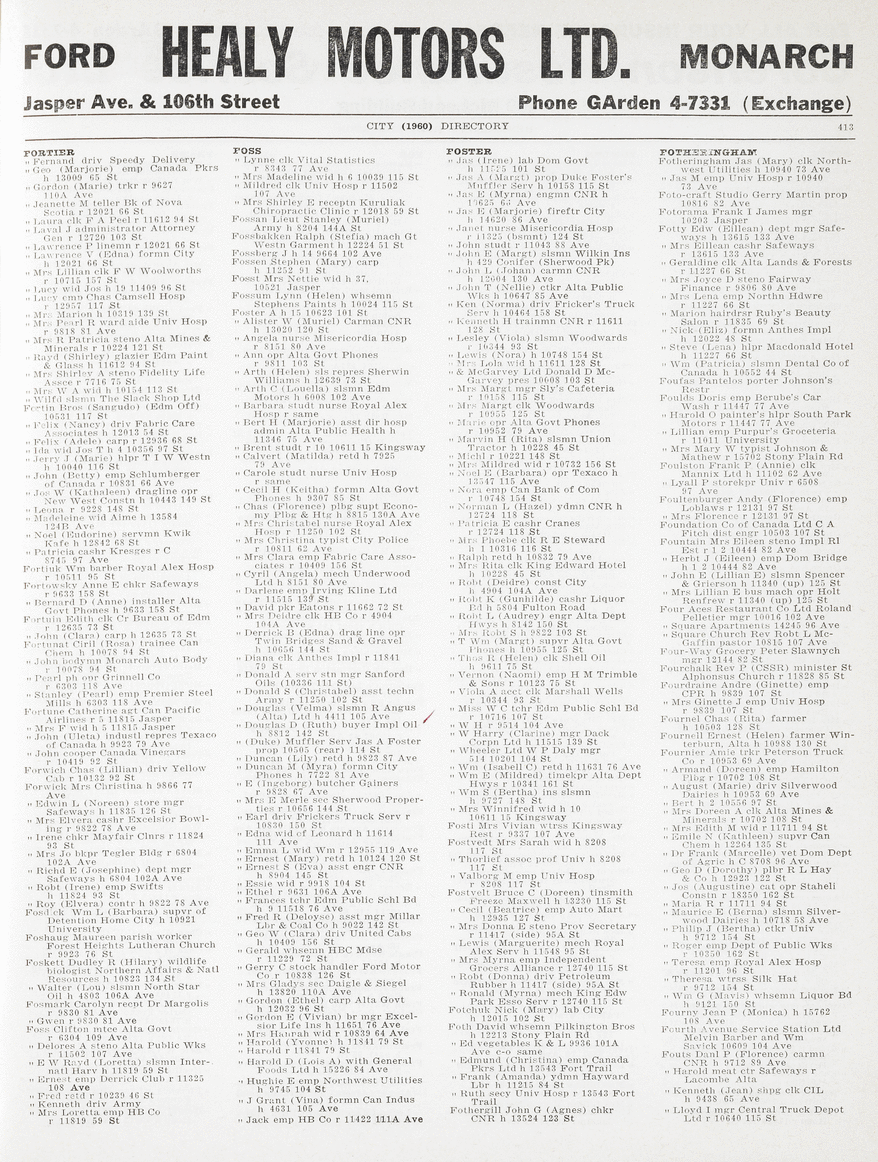 FORD HEALY MOTORS LTD. MONARCH
Jasper Ave. & 106th Street Phone GArden 4-7331 (Exchange)
CITY (1960) DIRECTORY 413
FORTIER
" Fernand driv Speedy Delivery
" Geo (Marjorie) emp Canada Pkrs
h 13009 65 St
" Gordon (Marie) trkr r 9627
110A Ave
" Jeanette M teller Bk of Nova
Scotia r 12021 66 St
" Laura clk F A Peel r 11612 94 St
" Laval J administrator Attorney
Gen r 12720 103 St
" Lawrence P linemn r 12021 66 St
" Lawrence V (Edna) formn City
h 12021 66 St
" Mrs Lillian clk F W Woolworths
r 10715 157 St
" Lucy wid Jos h 19 11409 96 St
" Lucy emp Chas Camsell Hosp
r 12957 117 St
" Mrs Marion h 10319 139 St
" Mrs Pearl R ward aide Univ Hosp
r 9818 81 Ave
" Mrs R Patricia steno Alta Mines &
Minerals r 10224 121 St
" Rayd (Shirley) glazier Edm Paint
& Glass h 11612 94 St
" Mrs Shirley A steno Fidelity Life
Assce r 7716 75 St
" Mrs W A wid h 10154 113 St
" Wilfd slsmn The Slack Shop Ltd
Fortin Bros (Sangudo) (Edm Off)
10531 117 St
" Felix (Nancy) driv Fabric Care
Associates h 12013 54 St
" Felix (Adele) carp r 12936 68 St
" Ida wid Jos T h 4 10356 97 St
" Jerry J (Marie) hlpr T I W Westn
h 10040 116 St
" John (Betty) emp Schlumberger
of Canada r 10831 66 Ave
" Jos W (Kathaleen) dragline opr
New West Constn h 10443 149 St
" Leona r 9228 148 St
" Madeleine wid Aime h 13584
124B Ave
" Noel (Eudorine) servmn Kwik
Kafe h 12842 68 St
" Patricia cashr Kresges r C
8745 97 Ave
Fortiuk Wm barber Royal Alex Hosp
r 10511 95 St
Fortowsky Anne E chkr Safeways
r 9633 158 St
" Bernard D (Anne) installer Alta
Govt Phones h 9633 158 St
Fortuin Edith clk Cr Bureau of Edm
r 12635 73 St
" John (Clara) carp h 12635 73 St
Fortunat Ciril (Rosa) trainee Can
Chem h 10078 94 St
" John bodymn Monarch Auto Body
r 10078 94 St
" Pearl ph opr Grinnell Co
r 6303 118 Ave
" Stanley (Pearl) emp Premier Steel
Mills h 6303 118 Ave
Fortune Catherine agt Can Pacific
Airlines r 5 11815 Jasper
" Mrs F wid h 5 11815 Jasper
" John (Uleta) industl repres Texaco
of Canada h 9923 79 Ave
" John cooper Canada Vinegars
r 10419 92 St
Forwich Chas (Lillian) driv Yellow
Cab r 10132 92 St
Forwick Mrs Christina h 9866 77
Ave
" Edwin L (Noreen) store mgr
Safeways h 11835 126 St
" Mrs Elvera cashr Excelsior Bowl-
ing r 9822 78 Ave
" Irene chkr Mayfair Clnrs r 11824
93 St
" Mrs Jo bkpr Tegler Bldg r 6804
102A Ave
" Richd E (Josephine) dept mgr
Safeways h 6804 102A Ave
" Robt (Irene) emp Swifts
h 11824 93 St
" Roy (Elvera) contr h 9822 78 Ave
Fosdick Wm L (Barbara) supvr of
Detention Home City h 10921
University
Foshaug Maureen parish worker
Forest Heights Lutheran Church
r 9923 76 St
Foskett Dudley R (Hilary) wildlife
biologist Northern Affairs & Natl
Resources h 10823 134 St
" Walter (Lou) slsmn North Star
Oil h 4803 106A Ave
Fosmark Carolyn recpt Dr Margolis
r 9830 81 Ave
" Gwen r 9830 81 Ave
Foss Clifton mtce Alta Govt
r 6304 109 Ave
" Delores A steno Alta Public Wks
r 11502 107 Ave
" E W Rayd (Loretta) slsmn Inter-
natl Harv h 11819 59 St
" Ernest emp Derrick Club r 11325
108 Ave
" Fred retd r 10239 46 St
" Kenneth driv Army
" Mrs Loretta emp HB Co
r 11819 59 St
FOSS
" Lynne clk Vital Statistics
r 8343 77 Ave
" Mrs Madeline wid h 6 10039 115 St
" Mildred clk Univ Hosp r 11502
107 Ave
" Mrs Shirley E receptn Kuruliak
Chiropractic Clinic r 12018 59 St
Fossan Lieut Stanley (Muriel)
Army h 8204 144A St
Fossbakken Ralph (Stefla) mach Gt
Westn Garment h 12224 51 St
Fossberg J h 14 9664 102 Ave
Fossen Stephen (Mary) carp
h 11252 91 St
Fosst Mrs Nettie wid h 37,
10521 Jasper
Fossum Lynn (Helen) whsemn
Stephens Paints h 10024 115 St
Foster A h 15 10623 101 St
" Alister W (Muriel) Carman CNR
h 13020 120 St
" Angela nurse Misericordia Hosp
r 8151 80 Ave
" Ann opr Alta Govt Phones
r 9811 103 St
" Arth (Helen) sls repres Sherwin
Williams h 12639 73 St
" Arth C (Louella) slsmn Edm
Motors h 6008 102 Ave
" Barbara studt nurse Royal Alex
Hosp r same
" Bert H (Marjorie) asst dir hosp
admin Alta Public Health h
11346 75 Ave
" Brent studt r 10 10611 15 Kingsway
" Calvert (Matilda) retd h 7925
79 Ave
" Carole studt nurse Univ Hosp
r same
" Cecil H (Keitha) formn Alta Govt
Phones h 9307 85 St
" Chas (Florence) plbg supt Econo-
my Plbg & Htg h 8815 130A Ave
" Mrs Christabel nurse Royal Alex
Hosp r 11250 102 St
" Mrs Christina typist City Police
r 10811 62 Ave
" Mrs Clara emp Fabric Care Asso-
ciates r 10409 156 St
" Cyril (Angela) mech Underwood
Ltd h 8151 80 Ave
" Darlene emp Irving Kline Ltd
r 11515 139 St
" David pkr Eatons r 11662 72 St
" Mrs Deidre clk HB Co r 4904
104A Ave
" Derrick B (Edna) drag line opr
Twin Bridges Sand & Gravel
h 10656 144 St
" Diana clk Anthes Impl r 11841
79 St
" Donald A serv stn mgr Sanford
Oils (10336 111 St)
" Donald S (Christabel) asst techn
Army r 11250 102 St
" Douglas (Velma) slsmn R Angus
(Alta) Ltd h 4411 105 Ave
" Douglas D (Ruth) buyer Impl Oil
h 8812 142 St
" (Duke) Muffler Serv Jas A Foster
prop 10505 (rear) 114 St
" Duncan (Lily) retd h 9823 87 Ave
" Duncan M (Myra) formn City
Phones h 7722 81 Ave
" E (Ingeborg) butcher Gainers
r 9828 67 Ave
" Mrs E Merle sec Sherwood Proper-
ties r 10656 144 St
" Earl driv Frickers Truck Serv r
10830 150 St
" Edna wid of Leonard h 11614
111 Ave
" Emma L wid Wm r 12955 119 Ave
" Ernest (Mary) retd h 10124 120 St
" Ernest S (Eva) asst engr CNR
h 8904 145 St
" Essie wid r 9918 104 St
" Ethel r 9631 106A Ave
" Frances tchr Edm Public Schl Bd
h 9 11518 76 Ave
" Fred R (Deloyse) asst mgr Millar
Lbr & Coal Co h 9022 142 St
" Geo W (Clara) driv United Cabs
h 10409 156 St
" Gerald whsemn HBC Mdse
r 11229 72 St
" Gerry C stock handler Ford Motor
Co r 10838 126 St
" Mrs Gladys sec Daigle & Siegel
h 13820 110A Ave
" Gordon (Ethel) carp Alta Govt
h 12032 96 St
" Gordon E (Vivian) br mgr Excel-
sior Life Ins h 11651 76 Ave
" Mrs Hannah wid r 10839 64 Ave
" Harold (Yvonne) h 11841 79 St
" Harold r 11841 79 St
" Harold D (Lois A) with General
Foods Ltd h 15226 84 Ave
" Hughie E emp Northwest Utilities
h 9745 104 St
" J Grant (Vina) formn Can Indus
h 4631 105 Ave
" Jack emp HB Co r 11422 111A Ave
FOSTER
" Jas (Irene) lab Dom Govt
h 11525 101 St
" Jas A (Margt) prop Duke Foster's
Muffler Serv h 10158 115 St
" Jas E (Myrna) engmn CNR h
" Jas E (Marjorie) fireftr City
h 14620 86 Ave
" Janet nurse Misericordia Hosp
r 11325 (bsmnt) 124 St
" John studt r 11043 88 Ave
" John E (Margt) slsmn Wilkin Ins
h 429 Conifer (Sherwood Pk)
" John L (Johan) carmn CNR
h 12604 130 Ave
" John T (Nellie) ctkr Alta Public
Wks h 10647 85 Ave
" Ken (Norma) driv Fricker's Truck
Serv h 10464 158 St
" Kenneth H trainmn CNR r 11611
128 St
" Lesley (Viola) slsmn Woodwards
r 10344 93 St
" Lewis (Nora) h 10748 154 St
" Mrs Lola wid h 11611 128 St
" & McGarvey Ltd Donald D Mc-
Garvey pres 10608 103 St
" Mrs Margt mgr Sly's Cafeteria
r 10158 115 St
" Mrs Margt clk Woodwards
r 10955 125 St
" Marie opr Alta Govt Phones
r 10952 79 Ave
" Marvin H (Rita) slsmn Union
Tractor h 10228 45 St
" Michl r 10221 148 St
" Mrs Mildred wid r 10732 156 St
" Noel E (Barbara) opr Texaco h
13547 115 Ave
" Nora emp Can Bank of Com
r 10748 154 St
" Norman L (Hazel) ydmn CNR h
12724 118 St
" Patricia E cashr Cranes
r 12724 118 St
" Mrs Phoebe clk R E Steward
h 1 10316 116 St
" Ralph retd h 10832 79 Ave
" Mrs Rita clk King Edward Hotel
h 10228 45 St
" Robt (Deidre) const City
h 4904 104A Ave
" Robt K (Gunhilde) cashr Liquor
Bd h 5804 Fulton Road
" Robt L (Audrey) engr Alta Dept
Hwys h 8142 150 St
" Mrs Robt S h 9822 103 St
" T Wm (Margt) supvr Alta Govt
Phones h 10955 125 St
" Thos R (Helen) clk Shell Oil
h 9611 75 St
" Vernon (Naomi) emp H M Trimble
& Sons r 10123 75 St
" Viola A acct clk Marshall Wells
r 10344 93 St
" Miss W C tchr Edm Public Schl Bd
r 10716 107 St
" W H r 9514 104 Ave
" W Harry (Clarine) mgr Dack
Corpn Ltd h 11515 139 St
" Wheeler Ltd W P Daly mgr
514 10201 104 St
" Wm (Isabell C) retd h 11631 76 Ave
" Wm E (Mildred) timekpr Alta Dept
Hwys r 10341 161 St
" Wm S (Bertha) ins slsmn
h 9727 148 St
" Mrs Winnifred wid h 10
10611 15 Kingsway
Fosti Mrs Vivian wtrss Kingsway
Rest r 9337 107 Ave
Fostvedt Mrs Sarah wid h 8208
117 St
" Thorlief assoc prof Univ h 8208
117 St
" Valborg M emp Univ Hosp
r 8208 117 St
Fostvelt Bruce C (Doreen) tinsmith
Freeze Maxwell h 13230 115 St
" Cecil (Beatrice) emp Auto Mart
h 12935 127 St
" Mrs Donna E steno Prov Secretary
r 11417 (side) 95A St
" Lewis (Marguerite) mech Royal
Alex Serv h 11548 95 St
" Mrs Myrna emp Independent
Grocers Alliance r 12740 115 St
" Robt (Donna) driv Petroleum
Rubber h 11417 (side) 95A St
" Ronald (Myrna) mech King Edw
Park Esso Serv r 12740 115 St
Fotchuk Nick (Mary) lab City
h 12015 102 St
Foth David whsemn Pilkington Bros
h 12213 Stony Plain Rd
" Ed vegetables K & L 9936 101A
Ave c-o same
" Edmund (Christina) emp Canada
Pkrs Ltd h 13543 Fort Trail
" Frank (Amanda) ydmn Hayward
Lbr h 11215 84 St
" Ruth secy Univ Hosp r 13543 Fort
Trail
Fothergill John G (Agnes) chkr
CNR h 13524 123 St
FOTHERINGHAM
Fotheringham Jas (Mary) clk North-
west Utilities h 10940 73 Ave
" Jas M emp Univ Hosp r 10940
73 Ave
Foto-craft Studio Gerry Martin prop
10816 82 Ave
Fotorama Frank I James mgr
10203 Jasper
Fotty Edw (Eillean) dept mgr Safe-
ways h 13615 133 Ave
" Mrs Eillean cashr Safeways
r 13615 133 Ave
" Geraldine clk Alta Lands & Forests
r 11227 66 St
" Mrs Joyce D steno Fairway
Finance r 9806 80 Ave
" Mrs Lena emp Northn Hdwre
r 11227 66 St
" Marion hairdrsr Ruby's Beauty
Salon r 11835 69 St
" Nick (Eliz) formn Anthes Impl
h 12022 48 St
" Steve (Lena) hlpr Macdonald Hotel
h 11227 66 St
" Wm (Patricia) slsmn Dental Co of
Canada h 10552 44 St
Foufas Pantelos porter Johnson's
Restr
Foulds Doris emp Berube's Car
Wash r 11447 77 Ave
" Harold O painter's hlpr South Park
Motors r 11447 77 Ave
" Lillian emp Purpur's Groceteria
r 11011 University
" Mrs Mary W typist Johnson &
Mathew r 15702 Stony Plain Rd
Foulston Frank P (Annie) clk
Mannix Ltd h 11102 62 Ave
" Lyall P storekpr Univ r 6508
97 Ave
Foultenburger Andy (Florence) emp
Loblaws r 12131 97 St
" Mrs Florence r 12131 97 St
Foundation Co of Canada Ltd C A
Fitch dist engr 10503 107 St
Fountain Mrs Eileen steno Impl Rl
Est r 1 2 10444 82 Ave
" Herbt J (Eileen) emp Dom Bridge
h 1 2 10444 82 Ave
" John E (Lillian E) slsmn Spencer
& Grierson h 11340 (up) 125 St
" Mrs Lillian E bus mach opr Holt
Renfrew r 11340 (up) 125 St
Four Aces Restaurant Co Ltd Roland
Pelletier mgr 10016 102 Ave
" Square Apartments 14245 96 Ave
" Square Church Rev Robt L Mc-
Gaffin pastor 10815 107 Ave
Four-Way Grocery Peter Slawnych
mgr 12144 82 St
Fourchalk Rev P (CSSR) minister St
Alphonsus Church r 11828 85 St
Fourdraine Andre (Ginette) emp
CPR h 9839 107 St
" Mrs Ginette J emp Univ Hosp
r 9839 107 St
Fournel Chas (Rita) farmer
h 10503 128 St
Fournell Ernest (Helen) farmer Win-
terburn, Alta h 10988 130 St
Fournier Anie trkr Peterson Truck
Co r 10953 69 Ave
" Armand (Doreen) emp Hamilton
Plbg r 10702 108 St
" August (Marie) driv Silverwood
Dairies h 10953 69 Ave
" Bert h 2 10556 97 St
" Mrs Doreen A clk Alta Mines &
Minerals r 10702 108 St
" Mrs Edith M wid r 11711 94 St
" Emile N (Kathleen) supvr Can
Chem h 12264 135 St
" Dr Frank (Marcelle) vet Dom Dept
of Agric h C 8708 96 Ave
" Geo D (Dorothy) plbr R L Hay
& Co h 12923 122 St
" Jos (Augustine) cat opr Staheli
Constn r 18350 162 St
" Maria R r 11711 94 St
" Maurice E (Berna) slsmn Silver-
wood Dairies h 10718 58 Ave
" Philip J (Bertha) ctkr Univ
h 9712 154 St
" Roger emp Dept of Public Wks
r 10350 162 St
" Teresa emp Royal Alex Hosp
r 11201 96 St
" Theresa wtrss Silk Hat
r 9712 154 St
" Wm G (Mavis) whsemn Liquor Bd
h 9121 150 St
Fourny Jean P (Monica) h 15762
108 Ave
Fourth Avenue Service Station Ltd
Melvin Barber and Wm
Savick 10609 104 Ave
Fouts Danl P (Florence) carmn
CNR h 9712 89 Ave
" Harold meat ctr Safeways r
Lacombe Alta
" Kenneth (Jean) shpg clk CIL
h 9438 65 Ave
" Lloyd I mgr Central Truck Depot
Ltd r 10640 115 St